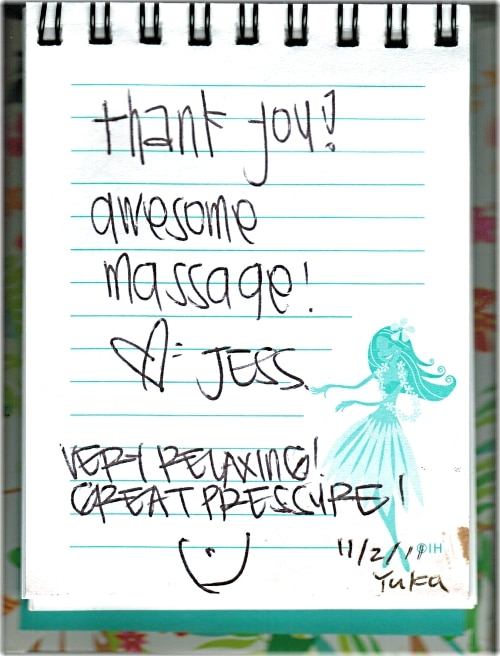 thank you!
awesome
massage!
♡- JESS.
VERY RELAXING!
GREAT PRESSURE!
11/2/11 ©IH
Yuka